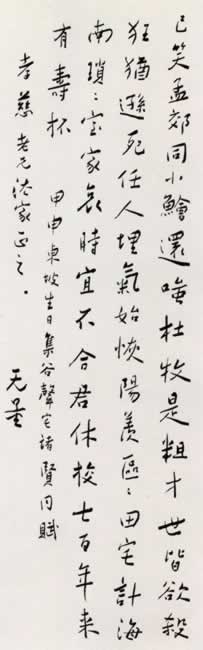 已笑孟郊同小鱠還嗤杜牧是粗才世皆欲殺
狂猶遜死任人埋氣始恢陽羨區〻田宅計海
南瑣〻室家哀時宜不合君休校七百年来
有壽杯 甲申東坡生日集谷聲宅諸賢同賦
孝慈老兄法家正之．
无量